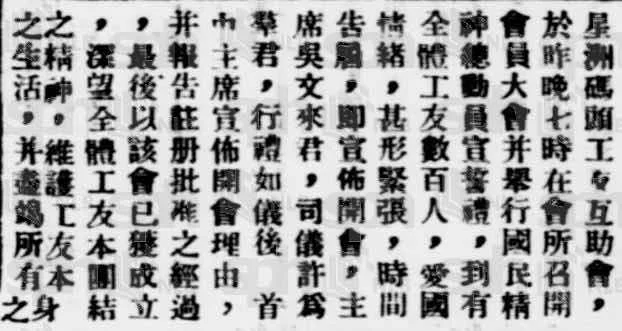 星洲碼頭工友互助會，
於昨晚七時在會所召開
會員大會并舉行國民精
神總動員宣誓禮，到有
全體工友數百人，愛國
情緒，甚形緊張，時間
告屆，即宣佈開會，主
席吳文來君，司儀許爲
羣君，行禮如儀後　首
由主席宣佈開會理由，
并報告註册批准之經過
，最後以該會已獲成立
，深望全體工友本團結
之精神，維護工友本身
之生活，并盡竭所有之